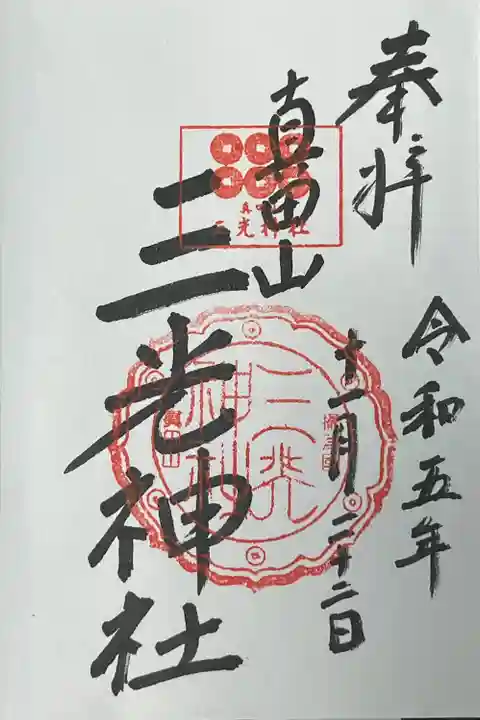 奉拝
令和五年
十一月二十二日
真田山
三光神社
三光神社
攝津國
三光神社
眞田山